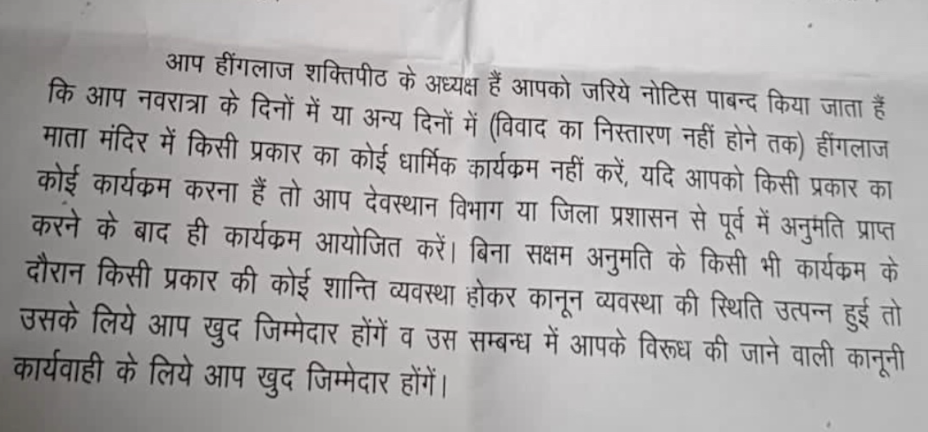 आप हींगलाज शक्तिपीठ के अध्यक्ष हैं आपको जरिये नोटिस पाबन्द किया जाता हैं
कि आप नवरात्रा के दिनों में या अन्य दिनों में (विवाद का निस्तारण नहीं होने तक) हींगलाज
माता मंदिर में किसी प्रकार का कोई धार्मिक कार्यक्रम नहीं करें, यदि आपको किसी प्रकार का
कोई कार्यक्रम करना हैं तो आप देवस्थान विभाग या जिला प्रशासन से पूर्व में अनुमति प्राप्त
करने के बाद ही कार्यक्रम आयोजित करें। बिना सक्षम अनुमति के किसी भी कार्यक्रम के
दौरान किसी प्रकार की कोई शान्ति व्यवस्था होकर कानून व्यवस्था की स्थिति उत्पन्न हुई तो
उसके लिये आप खुद जिम्मेदार होंगें व उस सम्बन्ध में आपके विरूध की जाने वाली कानूनी
कार्यवाही के लिये आप खुद जिम्मेदार होंगें।